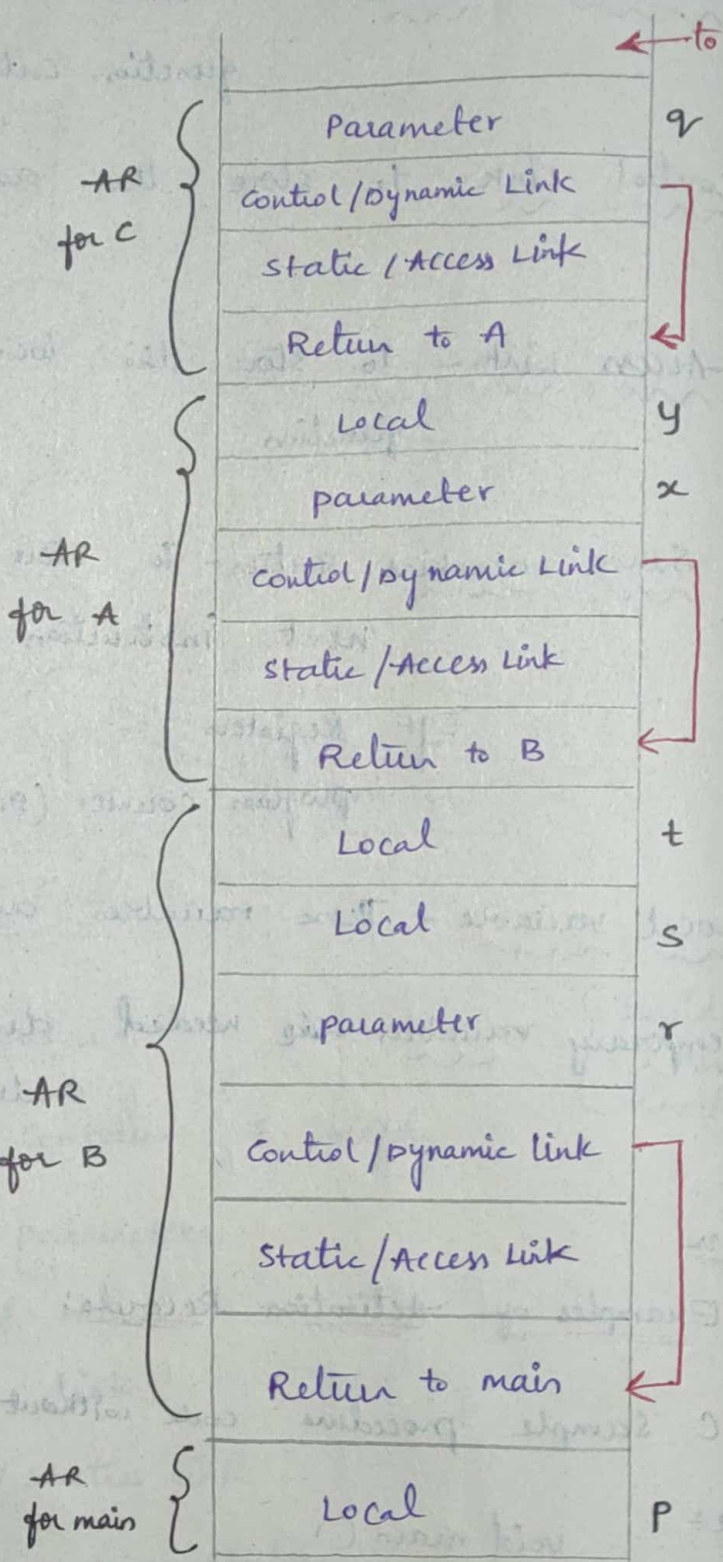 to
Parameter q
AR
for C
Control/Dynamic Link
Static/Access Link
Return to A
Local y
parameter x
AR
for A
Control/Dynamic Link
Static/Access Link
Return to B
Local t
Local s
parameter r
AR
for B
Control/Dynamic link
Static/Access Link
Return to main
AR
for main
Local P